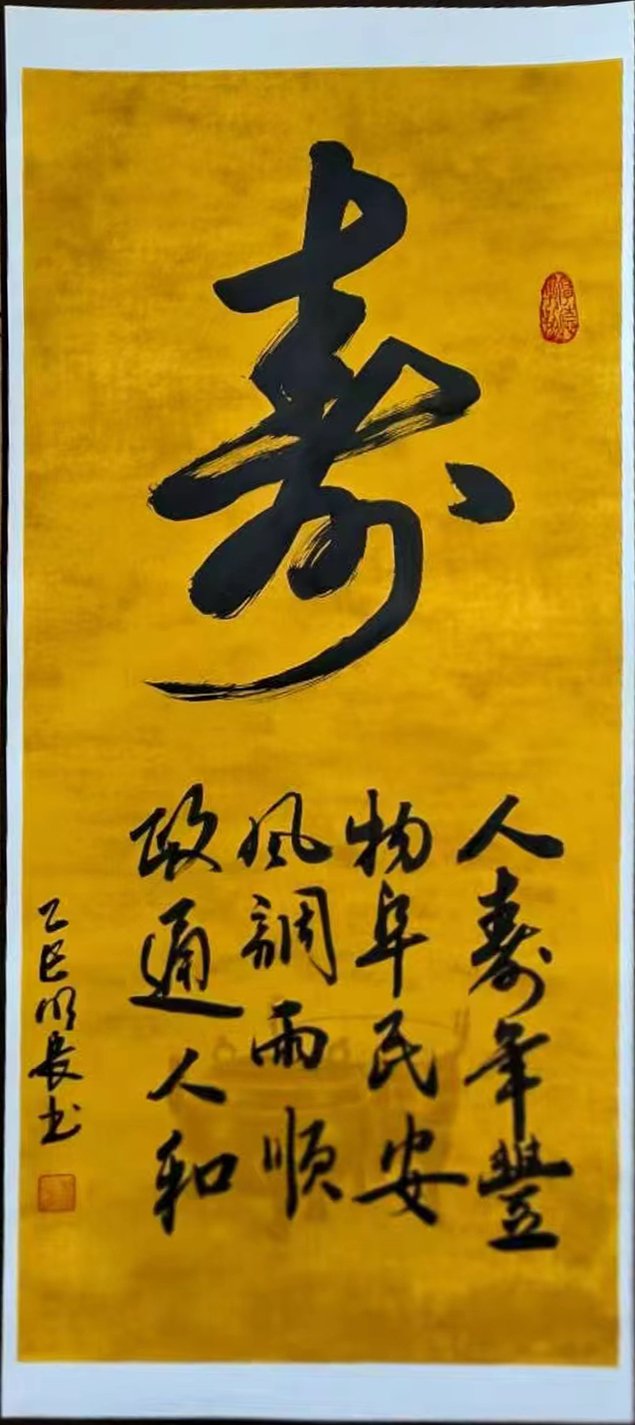 壽
人壽年豐
物阜民安
風調雨順
政通人和
乙巳明長书